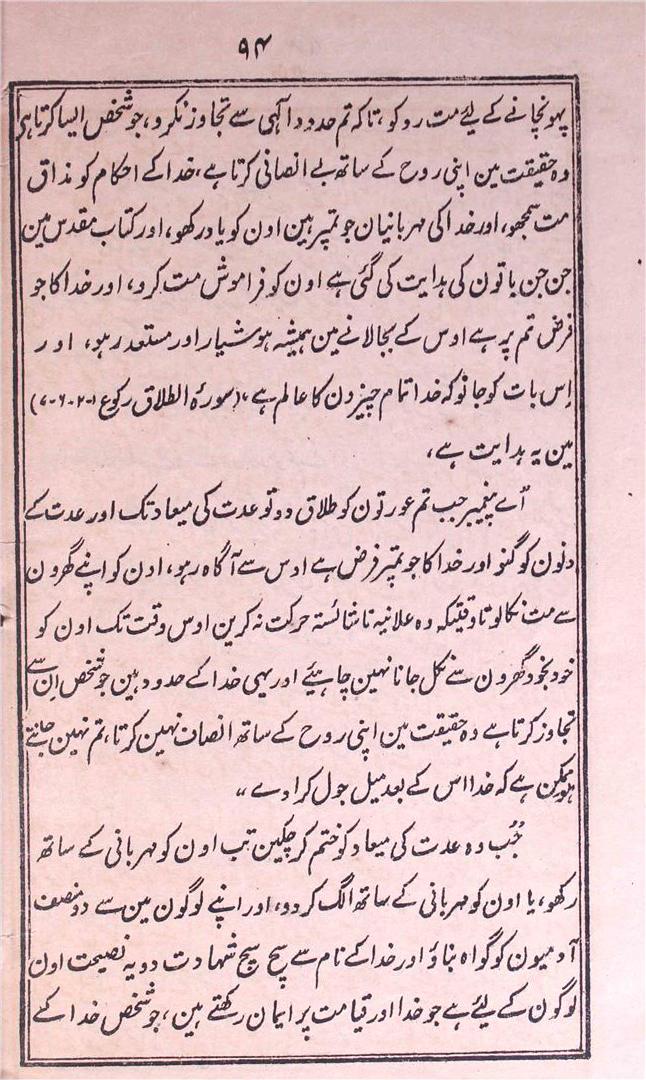 ۹۴
پہونچانے کے لیئے مت روکو، تاکہ تم حدود الٰہی سے تجاوز نکرو، جو شخص ایسا کرتا ہی
وہ حقیقت مین اپنی روح کے ساتھ بے انصافی کرتا ہے، خدا کے احکام کو مذاق
مت سمجھو، اور خدا کی مہربانیان جو تمپر ہین اون کو یاد رکھو، اور کتاب مقدس مین
جن جن باتون کی ہدایت کی گئی ہے اون کو فراموش مت کرو، اور خدا کا جو
فرض تم پر ہے اوس کے بجالانے مین ہمیشہ ہوشیار اور مستعد رہو، اور
اِس بات کو جانو کہ خدا تمام چیزون کا عالم ہے، (سورۂ الطلاق رکوع ۱-۲-۶-۷)
مین یہ ہدایت ہے،
اُے پیغمبر جب تم عورتون کو طلاق دو تو عدت کی میعاد تک اور عدت کے
دنون کو گنو اور خدا کا جو تمپر فرض ہے اوس سے آگاہ رہو، اون کو اپنے گھرون
سے مت نکالو تاوقتیکہ وہ علانیہ ناشائستہ حرکت نہ کرین اوس وقت تک اون کو
خود بخود گھرون سے نکل جانا نہین چاہیئے اور یہی خدا کے حدود ہین جو شخص اِن سے
تجاوز کرتا ہے وہ حقیقت مین اپنی روح کے ساتھ انصاف نہین کرتا، تم نہین جانتے
ہو ممکن ہے کہ خدا اس کے بعد میل جول کرا دے “
جُب وہ عدت کی میعاد کو ختم کرچکین تب اون کو مہربانی کے ساتھ
رکھو، یا اون کو مہربانی کے ساتھ الگ کردو، اور اپنے لوگون مین سے دو منصف
آدمیون کو گواہ بناؤ اور خدا کے نام سے سچ سچ شہادت دو یہ نصیحت اون
لوگون کے لیئے ہے جو خدا اور قیامت پر ایمان رکھتے ہین، جو شخص خدا کے